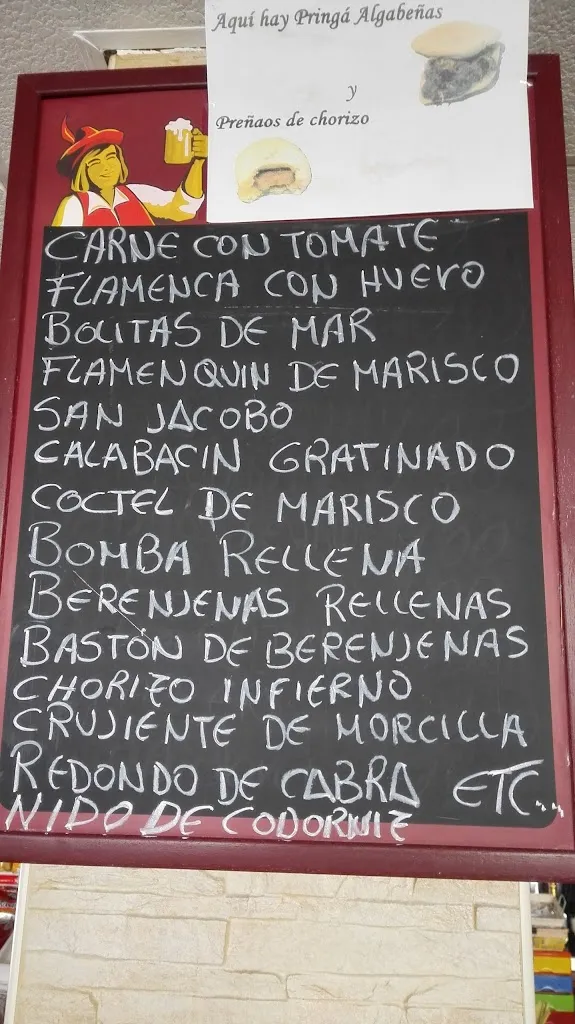 Aquí hay Pringá Algabeñas
y
Preñaos de chorizo
CARNE CON TOMATE
FLAMENCA CON HUEVO
BOLITAS DE MAR
FLAMENQUIN DE MARISCO
SAN JACOBO
CALABACIN GRATINADO
COCTEL DE MARISCO
BOMBA RELLENA
BERENJENAS RELLENAS
BASTÓN DE BERENJENAS
CHORIZO INFIERNO
CRUJIENTE DE MORCILLA
REDONDO DE CABRA ETC...
NIDO DE CODORNIZ